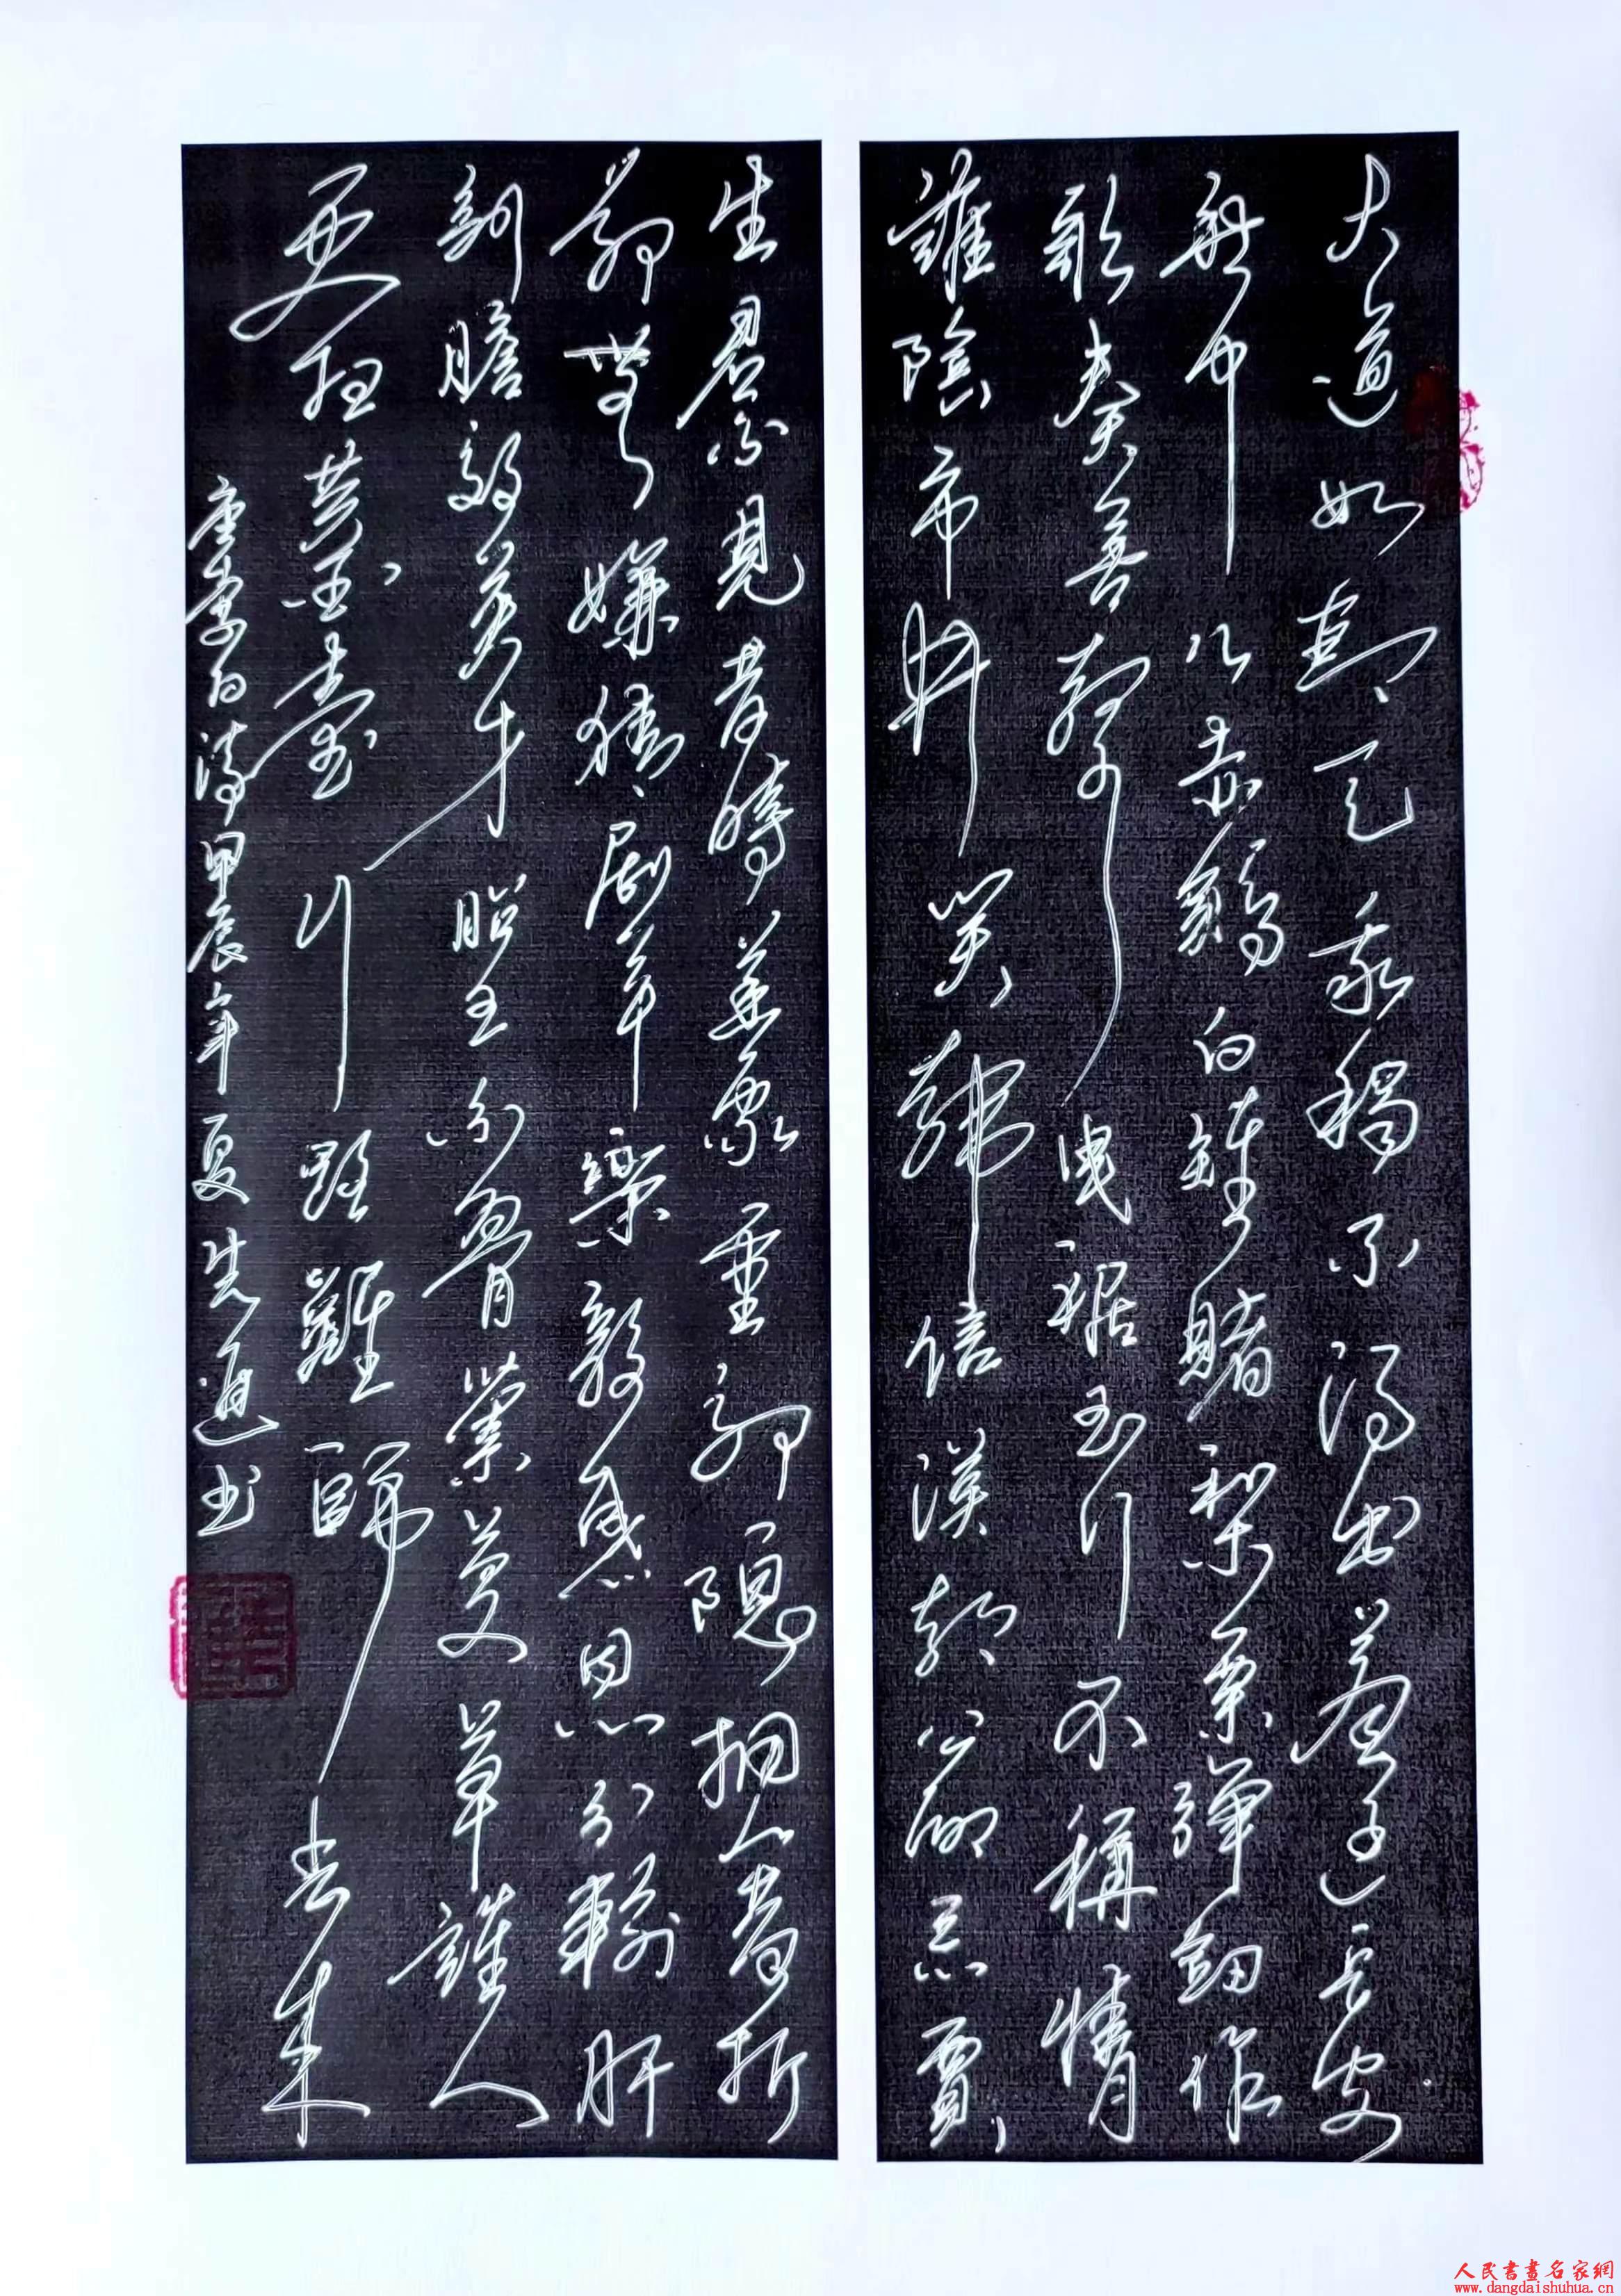 大道如青天我獨不得出羞逐長安
社中兒赤雞白雉賭梨栗彈劍作
歌奏苦聲曳裾王門不稱情
淮陰市井笑韓信漢朝公卿忌賈
生君不見昔時燕家重郭隗擁篲折
節無嫌猜劇辛樂毅感恩分輸肝
剖膽效英才昭王白骨縈蔓草誰人
更掃黃金臺行路難歸去來
唐李白詩甲辰年夏先通书
人民書畫名家網
www.dangdaishuhua.cn